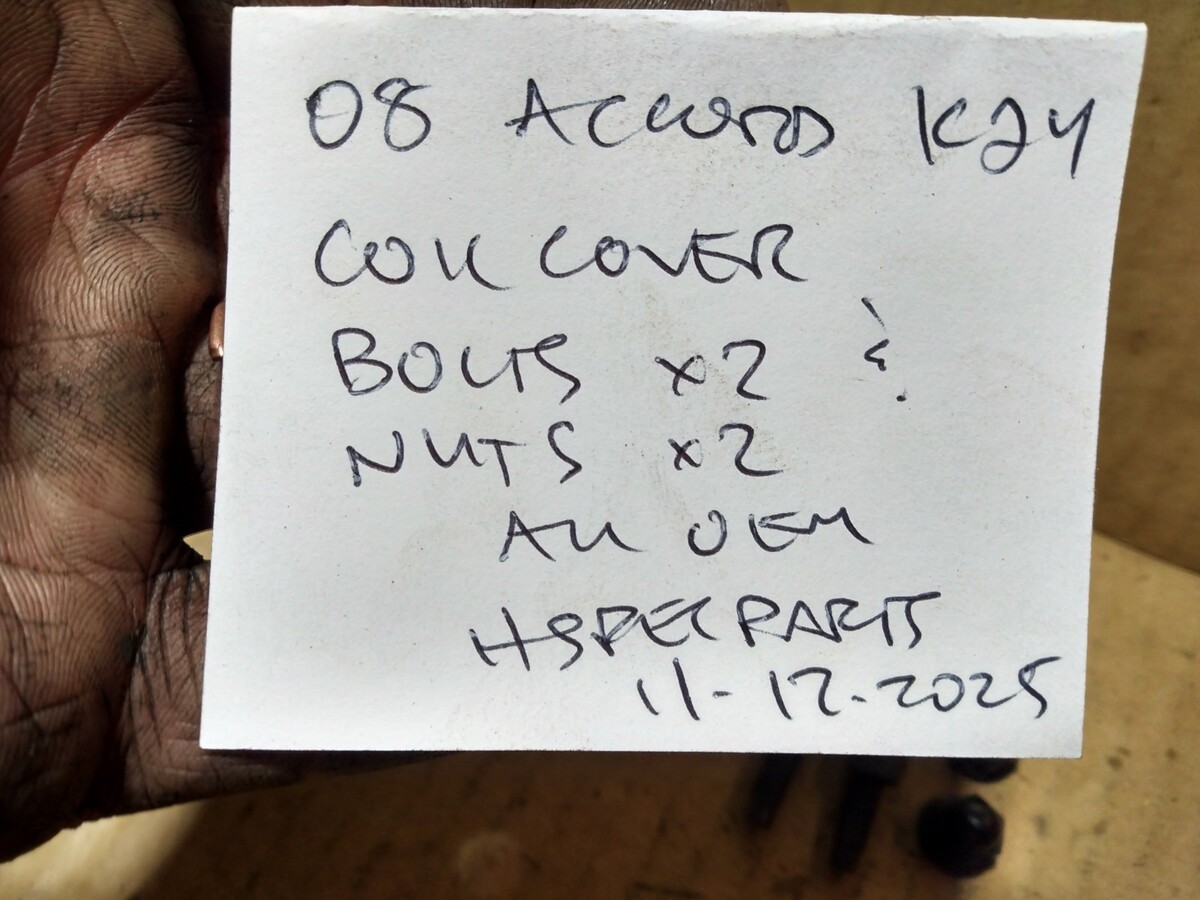 08 ACCORD K24
COIL COVER
BOLTS x2 &
NUTS x2
ALL OEM
HSPEC PARTS
11-12-2025